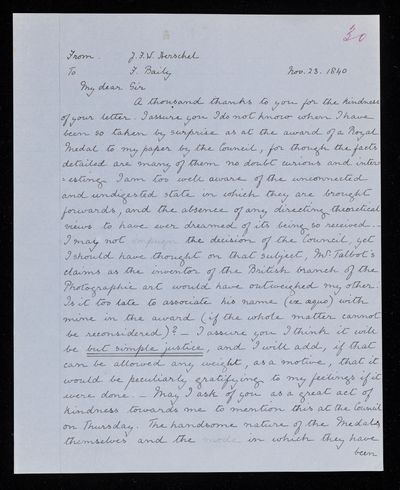 30
From J.F.W. Herschel
To F. Baily Nov. 23. 1840
My dear Sir
A thousand thanks to you for the kindness
of your letter. I assure you I do not know when I have
been so taken by surprise as at the award of a Royal
Medal to my paper by the Council, for though the facts
detailed are many of them no doubt curious and inter
=esting I am too well aware of the unconnected
and undigested state in which they are brought
forwards, and the absence of any directing theoretical
views to have ever dreamed of its being so received. –
I may not impugn the decision of the Council, yet
I should have thought on that subject, Mr. Talbot's
claims as the inventor of the British branch of the
Photographic art would have outweighed my other.
Is it too late to associate his name (ex æquo) with
mine in the award (if the whole matter cannot
be reconsidered)? – I assure you I think it will
be but simple justice, and I will add, if that
can be allowed any weight, as a motive, that it
would be peculiarly gratifying to my feelings if it
were done. – May I ask of you as a great act of
kindness towards me to mention this at the Council
on Thursday. The handsome nature of the Medals
themselves and the mode in which they have
been